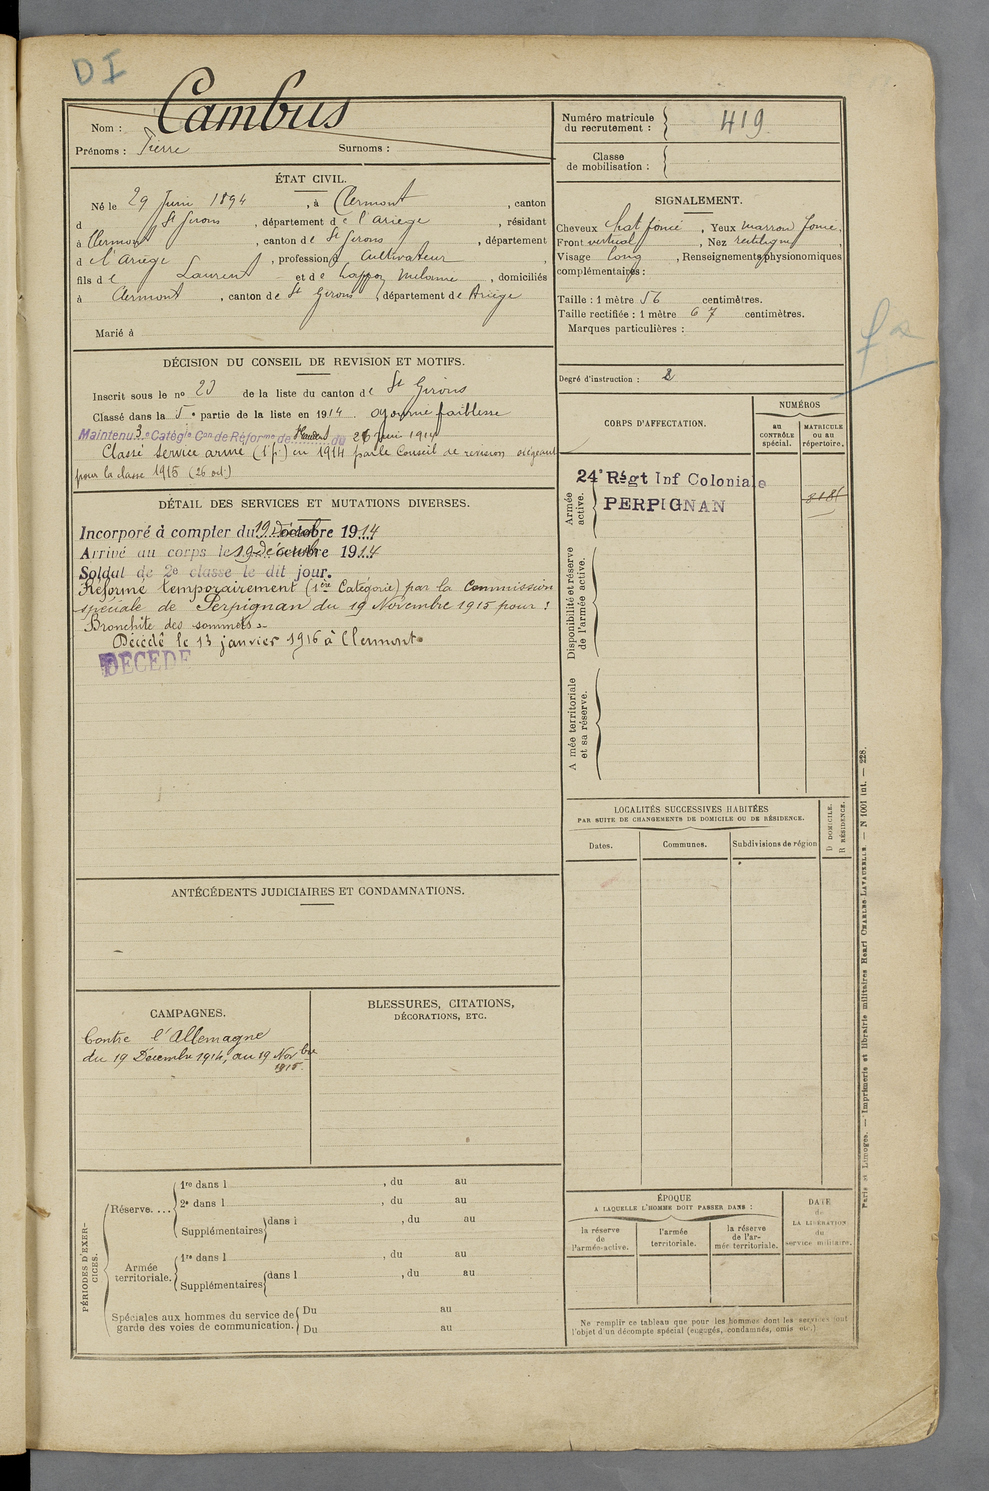 DI
Nom : Cambus
Prénoms : Pierre Surnoms :
Numéro matricule du recrutement : 419
Classe de mobilisation :
ÉTAT CIVIL.
Né le 29 Juin 1894, à Clermont, canton
d St Girons, département de l'Ariège, résidant
à Clermont, canton de St Girons, département
d e l'Ariège, profession d Cultivateur,
fils d e Laurent et de Melanie, domiciliés
à Clermont, canton de St Girons, département de Ariège
Marié à
SIGNALEMENT.
Cheveux chat foncé, Yeux marron foncé,
Front vertical, Nez rectiligne,
Visage long, Renseignements physionomiques
complémentaires :
Taille : 1 mètre 56 centimètres.
Taille rectifiée : 1 mètre 67 centimètres.
Marques particulières :
Degré d'instruction : 2
DÉCISION DU CONSEIL DE REVISION ET MOTIFS.
Inscrit sous le no 23 de la liste du canton de St Girons
Classé dans la 5e partie de la liste en 1914. ajourné faiblesse
Maintenu 3e Catégie Con de Réforme de du 26 juin 1914
Classé service armé (1e p.) en 1914 par le Conseil de revision siégeant
pour la classe 1915 (26 oct.)
DÉTAIL DES SERVICES ET MUTATIONS DIVERSES.
Incorporé à compter du 19 Décembre 1914
Arrivé au corps le 19 Décembre 1914
Soldat de 2e classe le dit jour.
Réformé temporairement (1ère Catégorie) par la Commission
spéciale de Perpignan du 19 Novembre 1915 pour :
Bronchite des sommets.
Décédé le 13 janvier 1916 à Clermont
DÉCÉDÉ
CORPS D'AFFECTATION.
NUMÉROS
au CONTRÔLE spécial.
MATRICULE ou au répertoire.
Armée active.
24e Régt Inf Coloniale
PERPIGNAN
8181
Disponibilité et réserve de l'armée active.
A mée territoriale et sa réserve.
LOCALITÉS SUCCESSIVES HABITÉES
PAR SUITE DE CHANGEMENTS DE DOMICILE OU DE RÉSIDENCE.
Dates. Communes. Subdivisions de région
D DOMICILE.
R RÉSIDENCE.
ANTÉCÉDENTS JUDICIAIRES ET CONDAMNATIONS.
CAMPAGNES.
Contre l'Allemagne
du 19 Décembre 1914, au 19 Novbre
1915.
BLESSURES, CITATIONS,
DÉCORATIONS, ETC.
PÉRIODES D'EXERCICES.
Réserve....
1re dans l , du au
2e dans l , du au
Supplémentaires dans l , du au
Armée territoriale.
1re dans l , du au
Supplémentaires dans l , du au
Spéciales aux hommes du service de
garde des voies de communication.
Du au
Du au
ÉPOQUE
A LAQUELLE L'HOMME DOIT PASSER DANS :
la réserve de l'armée active.
l'armée territoriale.
la réserve de l'armée territoriale.
DATE de LA LIBÉRATION du service militaire.
Ne remplir ce tableau que pour les hommes dont les services font
l'objet d'un décompte spécial (engagés, condamnés, omis etc.)
Paris et Limoges. — Imprimerie et librairie militaires Henri CHARLES-LAVAUZELLE. — N 1001 int. — 228.